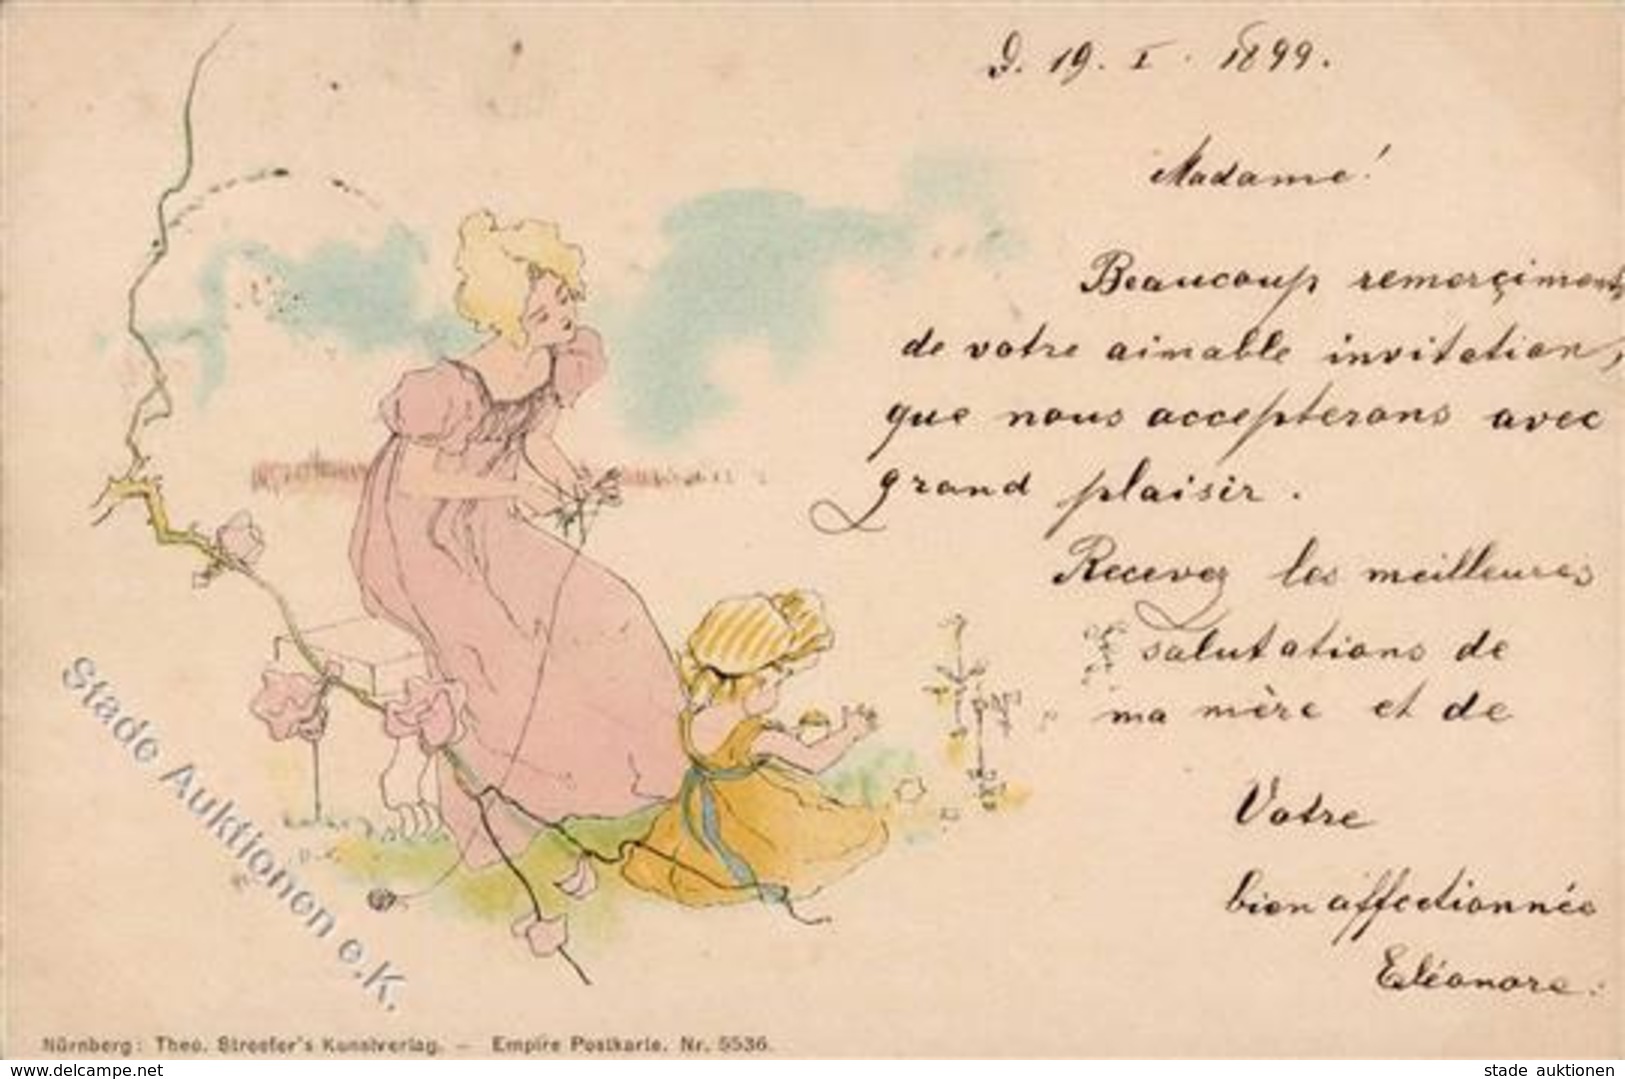 D. 19. I. 1899.
Madame!
Beaucoup remerçiments
de votre aimable invitation,
que nous accepterons avec
grand plaisir.
Recevez les meilleures
salutations de
ma mère et de
Votre
bien affectionnée
Eléonore.
Stade Auktionen e.K.
Nürnberg: Theo. Stroefer's Kunstverlag. — Empire Postkarte. Nr. 5536.
www.delcampe.net
stade auktionen